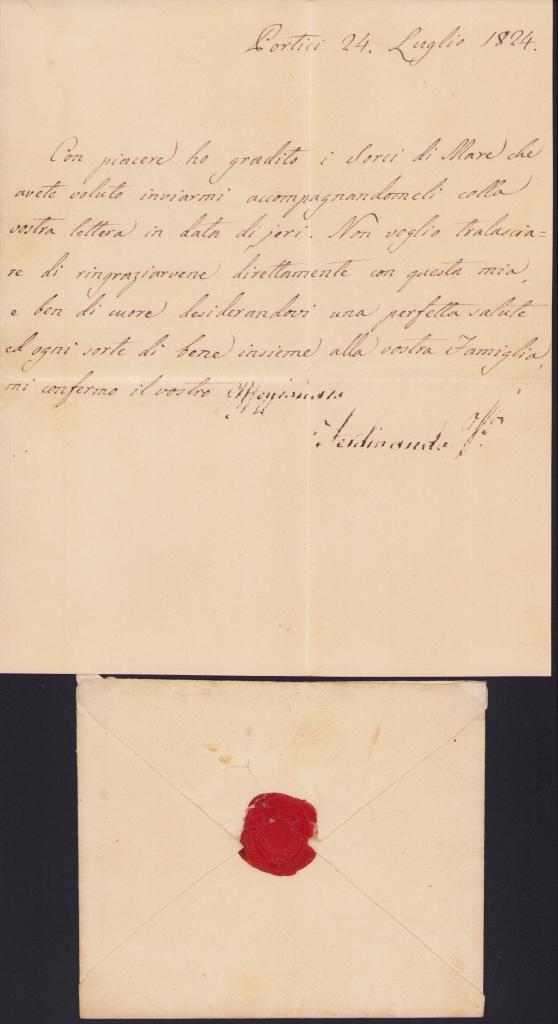 Portici 24. Luglio 1824.
Con piacere ho gradito i Sorci di Mare che
avete voluto inviarmi accompagnandomeli colla
vostra lettera in data di jeri. Non voglio tralascia=
re di ringraziarvene direttamente con questa mia,
e ben di cuore desiderandovi una perfetta salute
ed ogni sorte di bene insieme alla vostra Famiglia,
mi confermo il vostro Affezionato
Ferdinando